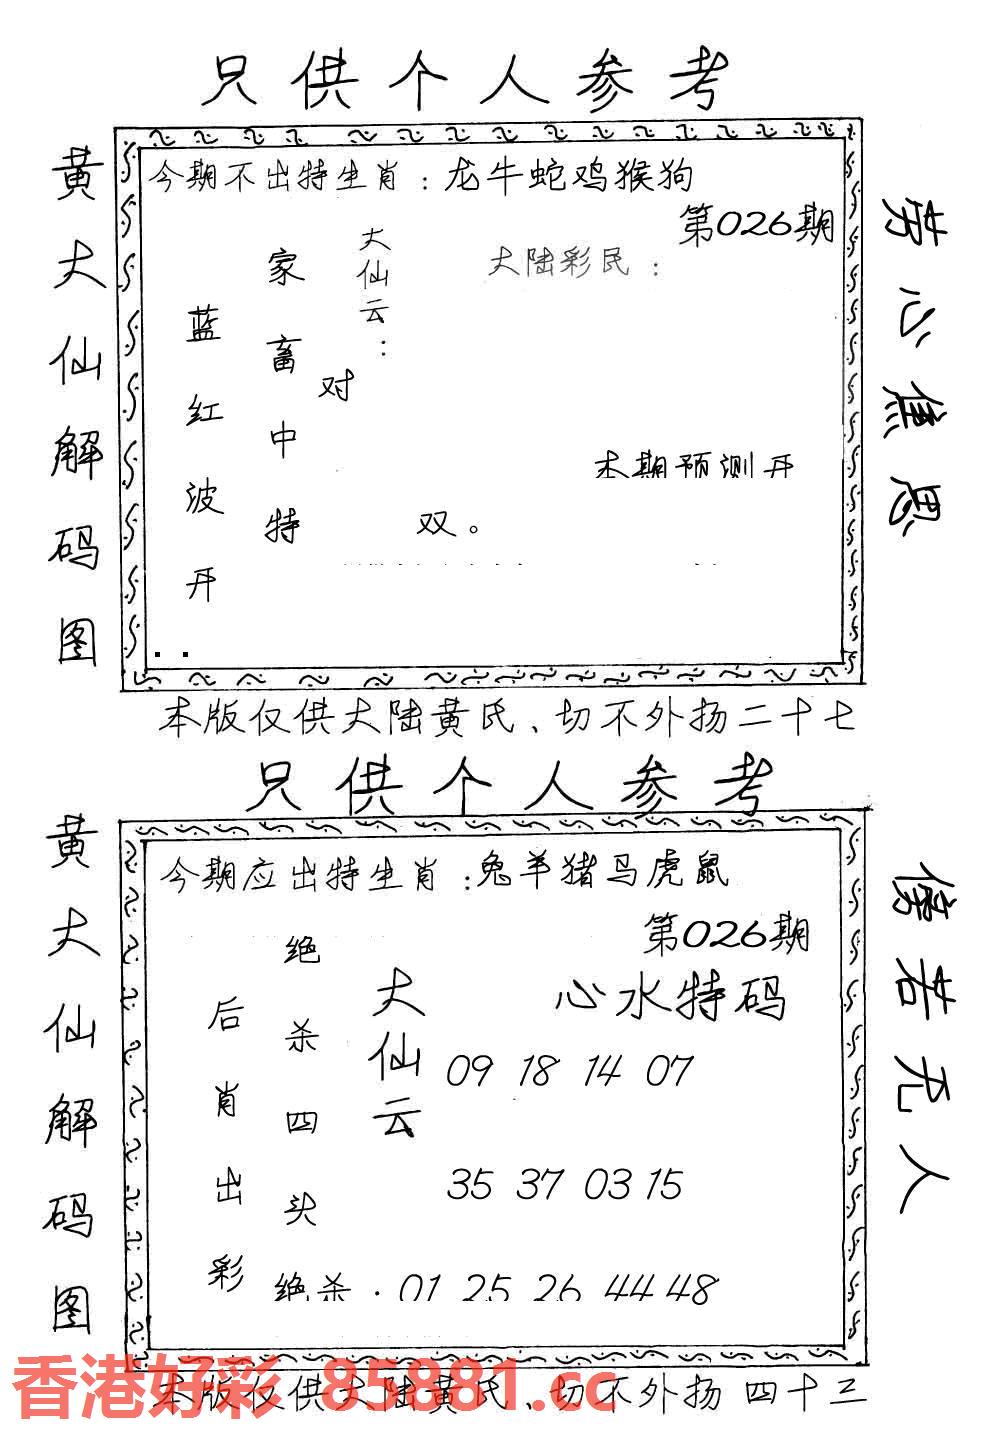 只供个人参考
黄大仙解码图
今期不出特生肖：龙牛蛇鸡猴狗
第026期
大陆彩民：
大仙云：
家畜中特
蓝红波开
对
双。
本期预测开
劳心焦思
本版仅供大陆黄氏、切不外扬二十七
只供个人参考
黄大仙解码图
今期应出特生肖：兔羊猪马虎鼠
第026期
心水特码
大仙云
绝杀四头
后肖出彩
09 18 14 07
35 37 03 15
绝杀：01 25 26 44 48
傍若无人
本版仅供大陆黄氏、切不外扬 四十三
香港好彩 85881.cc